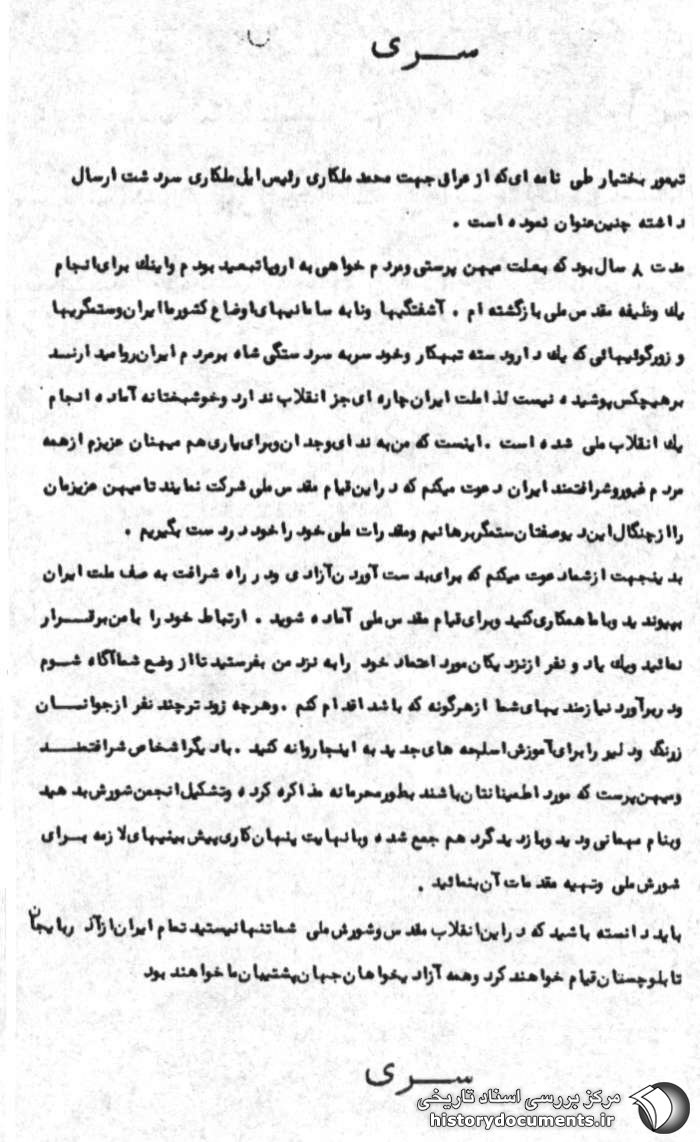 سری
تیمور بختیار طی نامه ای که از عراق جهت محمد ملکاری رئیس ایل ملکاری سردشت ارسال
داشته چنین عنوان نموده است .
مدت ۸ سال بود که بعلت میهن پرستی ومردم خواهی به اروپا تبعید بودم واینک برای انجام
یک وظیفه مقدس ملی بازگشته ام . آشفتگیها ونابه سامانیهای اوضاع کشورما ایران وستمگریها
و زورگوئیهائی که یک دارودسته تبهکار وخودسر به سردستگی شاه برمردم ایران روا میدارنـد
برهیچکس پوشیده نیست لذا ملت ایران چاره ای جز انقلاب ندارد وخوشبختانه آماده انجام
یک انقلاب ملی شده است . اینست که من به ندای وجدان وبرای یاری هم میهنان عزیزم ازهمه
مردم غیور وشرافتمند ایران دعوت میکنم که دراین قیام مقدس ملی شرکت نمایند تامیهن عزیزمان
را از چنگال این دیوصفتان ستمگر برهانیم ومقدرات ملی خود را خود در دست بگیریم .
بدینجهت ازشما دعوت میکنم که برای بدست آوردن آزادی ودر راه شرافت به صف ملت ایران
بپیوندید وباما همکاری کنید وبرای قیام مقدس ملی آماده شوید . ارتباط خود را بامن برقـرار
نمائید ویک یا دو نفر ازنزدیکان مورد اعتماد خود را به نزد من بفرستید تا از وضع شما آگاه شـوم
ودربرآورد نیازمندیهای شما ازهرگونه که باشد اقدام کنم . وهرچه زودتر چند نفر ازجوانـان
زرنگ ودلیر را برای آموزش اسلحه های جدید به اینجا روانه کنید . بادیگر اشخاص شرافتمنـد
ومیهن پرست که مورد اطمینانتان باشند بطورمحرمانه مذاکره کرده وتشکیل انجمن شورش بدهید
وبنام مهمانی ودید وبازدید گردهم جمع شده وبانهایت پنهان کاری پیش بینیهای لازمه بـرای
شورش ملی وتهیه مقدمات آن بنمائید .
باید دانسته باشید که دراین انقلاب مقدس وشورش ملی شما تنها نیستید تمام ایران ازآذربایجان
تابلوچستان قیام خواهند کرد وهمه آزادیخواهان جهان پشتیبان ما خواهند بود
سری
مرکز بررسی اسناد تاریخی
historydocuments.ir